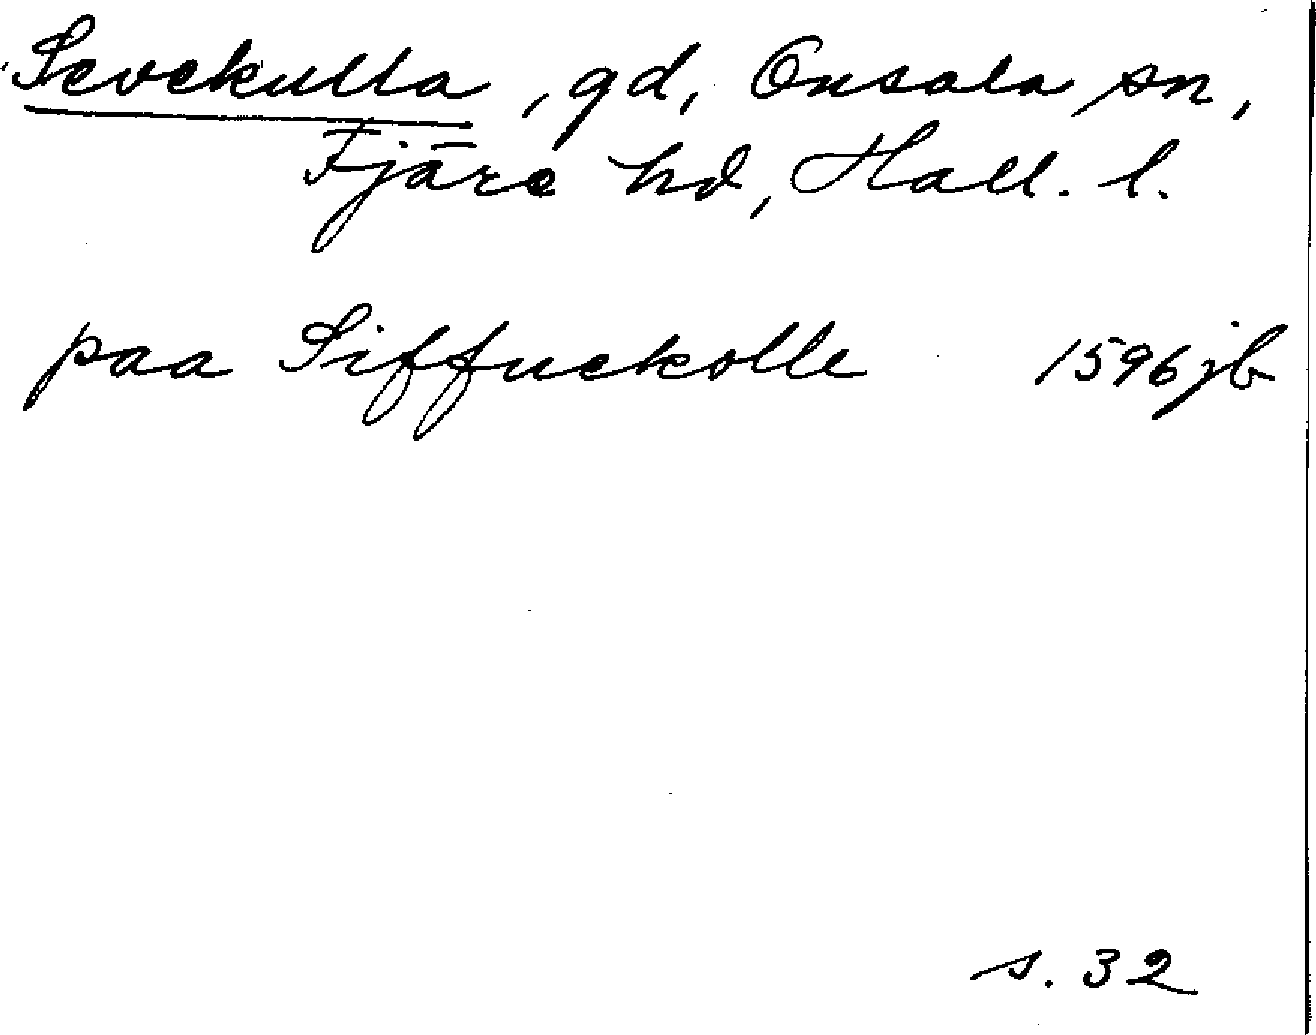 Sevekulla, gd, Onsala sn,
Fjäre hd, Hall. l.
paa Siffuekolle 1596 jb
s. 32